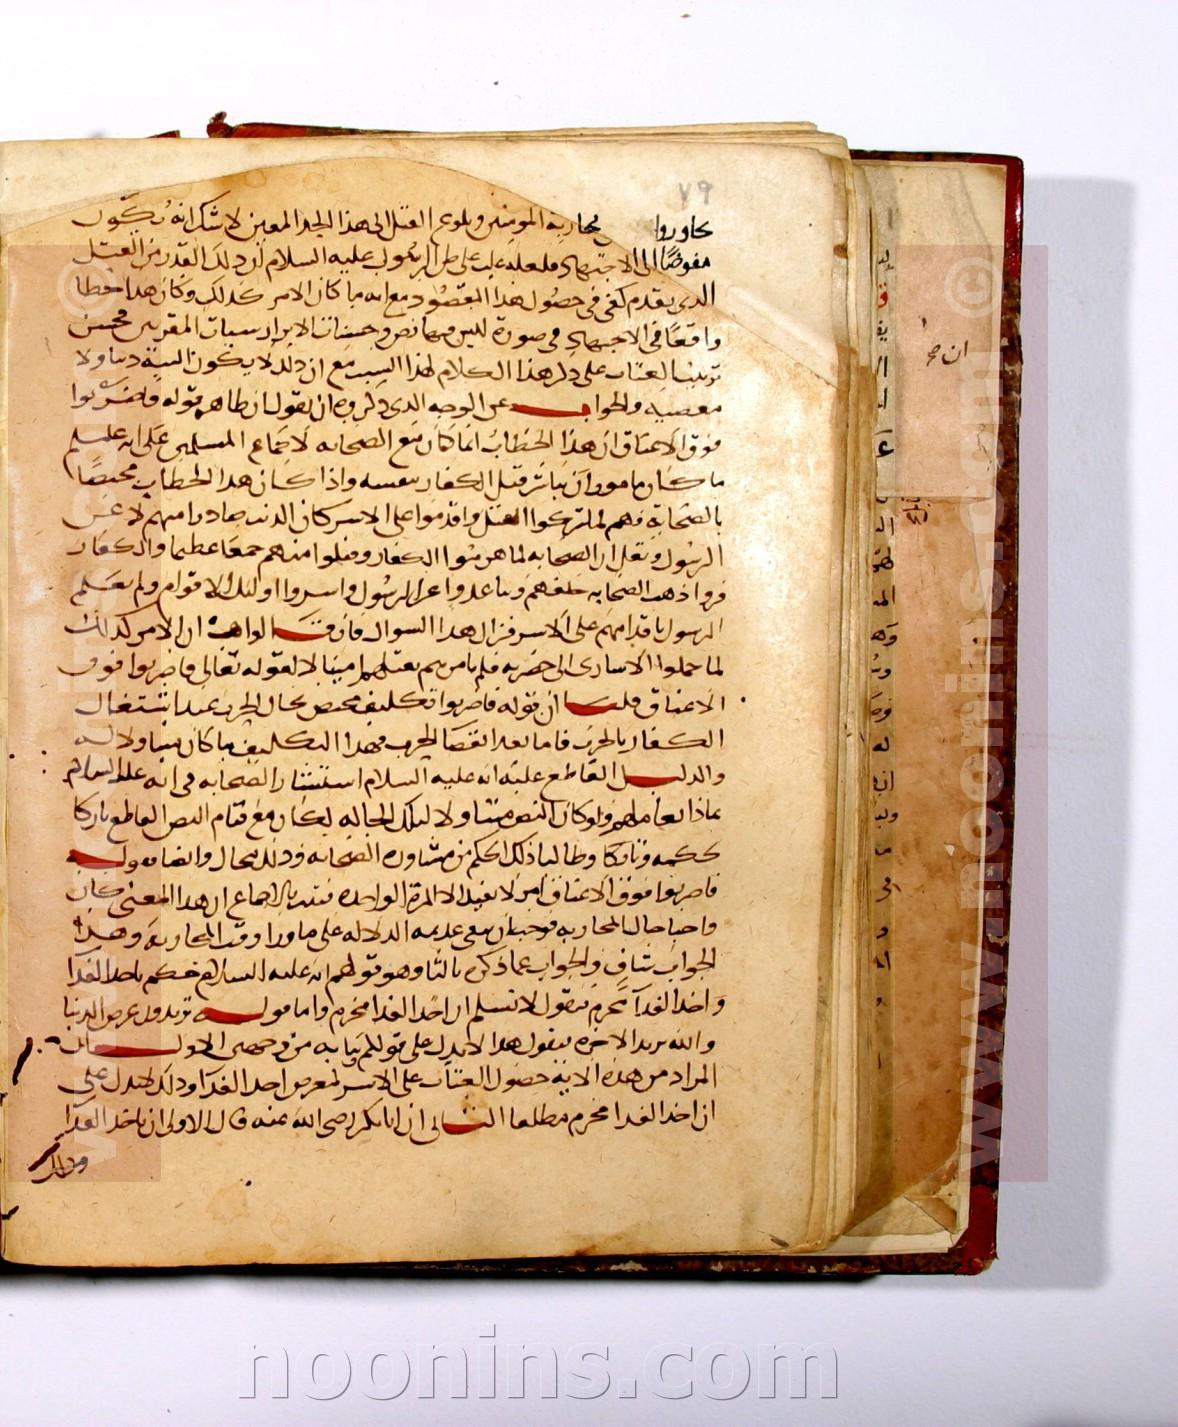 ٧٩
جاوروا محاربة المومنين وبلوغ القتل الى هذا الحد المعين لا شك انه يكون
مفوضا الى الاجتهاد فلعله غلب على ظن الرسول عليه السلام ان ذلك القدر من القتل
الذي تقدم كفى في حصول هذا المقصود مع انه ما كان الامر كذلك وكان هذا خطا
واقعا في الاجتهاد في صورة ليس فيها نص وحسنات الابرار سيات المقربين فحسن
ترتيب العتاب على ذكر هذا الكلام لهذا السبب مع ان ذلك لا يكون البتة ذنبا ولا
معصية والجواب عن الوجه الذي ذكروه ان نقول ان ظاهر قوله فاضربوا
فوق الاعناق ان هذا الخطاب انما كان مع الصحابه لاجماع المسلمين على انه عليلم
ما كان مامورا ان يباشر قتل الكفار بنفسه واذا كان هذا الخطاب مختصا
بالصحابة فهم لما تركوا القتل واقدموا على الاسر كان الذنب صادرا منهم لا عن
الرسول ونقل ان الصحابه لما هزموا الكفار وقتلوا منهم جمعا عظيما والكفار
فروا ذهب الصحابه خلفهم وتباعدوا عن الرسول واسروا اولئك الاقوام ولم يعلم
الرسول باقدامهم على الاسر فزال هذا السوال فان قالوا هب ان الامر كذلك
لما حملوا الاسارى الى حضرته فلم يامرهم بقتلهم امتثالا لقوله تعالى فاضربوا فوق
الاعناق قلنا ان قوله فاضربوا تكليف مختص بحال الحرب عند اشتغال
الكفار بالحرب فاما بعد انقضا الحرب فهذا التكليف ما كان متناولا له
والدليل القاطع عليه انه عليه السلام استشار الصحابه في انه عليه السلام
بماذا يعاملهم ولو كان النص متناولا لتلك الحاله لكان مع قيام النص القاطع تاركا
لحكمه وتاركا وطالبا ذلك الحكم من مشاورة الصحابه وذلك محال وايضا قوله
فاضربوا فوق الاعناق امر لا يفيد الا المرة الواحدة فثبت بالاجماع ان هذا المعنى كان
واجبا حال المحاربه فوجب ان يبقى عديم الدلالة على ما ورا وقت المحاربة وهذا
الجواب شاف والجواب عما ذكره ثالثا وهو قولهم انه عليه السلام حكم باخذ الفدا
واخذ الفدآ محرم فنقول لا نسلم ان اخذ الفدا محرم واما قوله تريدون عرض الدنيا
والله يريد الاخره فنقول هذا لا يدل على قولكم وبيانه من وجهين الاول ان
المراد من هذه الاية حصول العتاب على الاسر لغرض اخذ الفدآ وذلك لا يدل على
ان اخذ الفدا محرم مطلقا الثاني ان ابا بكر رضي الله عنه قال الاولى ان ناخذ الفدآ
ان صح
noonins.com